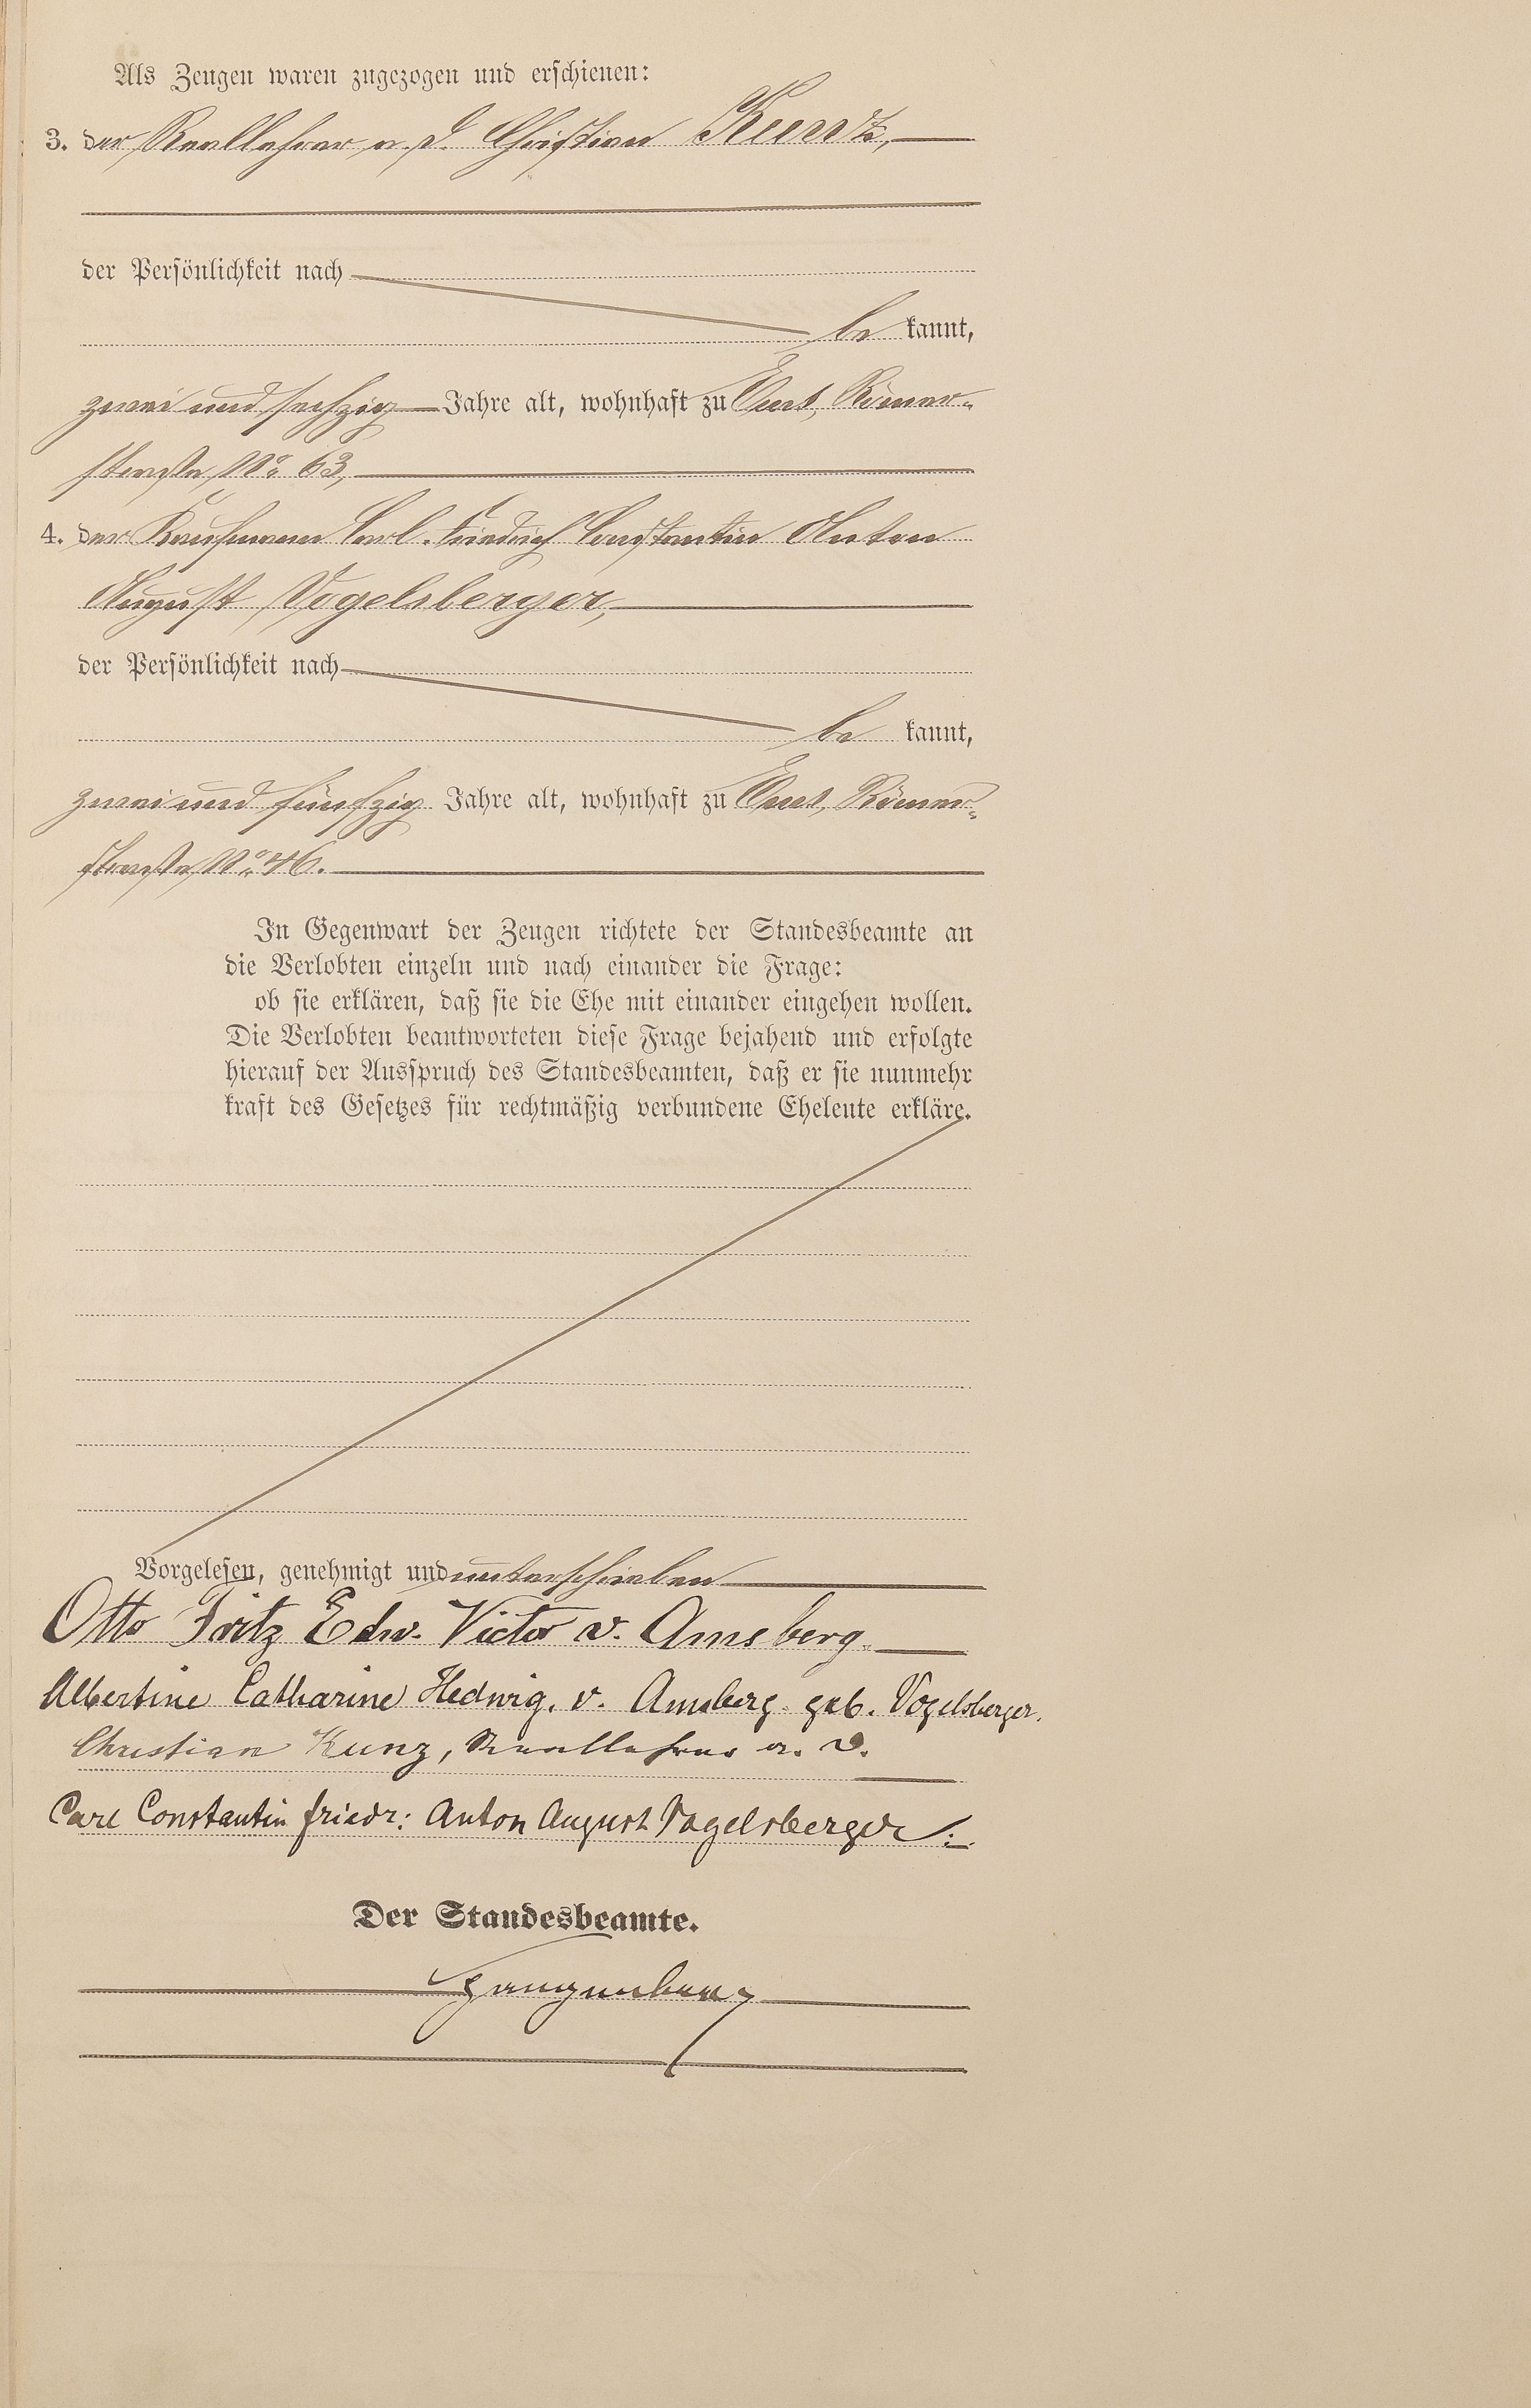 Als Zeugen waren zugezogen und erschienen:
3. der Reallehrer a. D. Christian Kuntz,
der Persönlichkeit nach
be kannt,
zwei und sechzig Jahre alt, wohnhaft zu Ems, Römer-
straße No 63,
4. der Kaufmann Carl Friedrich Constantin Anton
August Vogelsberger,
der Persönlichkeit nach
be kannt,
zwei und fünfzig Jahre alt, wohnhaft zu Ems, Römer-
straße No 46.
In Gegenwart der Zeugen richtete der Standesbeamte an
die Verlobten einzeln und nach einander die Frage:
ob sie erklären, daß sie die Ehe mit einander eingehen wollen.
Die Verlobten beantworteten diese Frage bejahend und erfolgte
hierauf der Ausspruch des Standesbeamten, daß er sie nunmehr
kraft des Gesetzes für rechtmäßig verbundene Eheleute erkläre.
Vorgelesen, genehmigt und unterschrieben
Otto Fritz Edw. Victor v. Amsberg.
Albertine Catharine Hedwig. v. Amsberg. geb. Vogelsberger.
Christian Kunz, Reallehrer a. D.
Carl Constantin Friedr: Anton August Vogelsberger.
Der Standesbeamte.